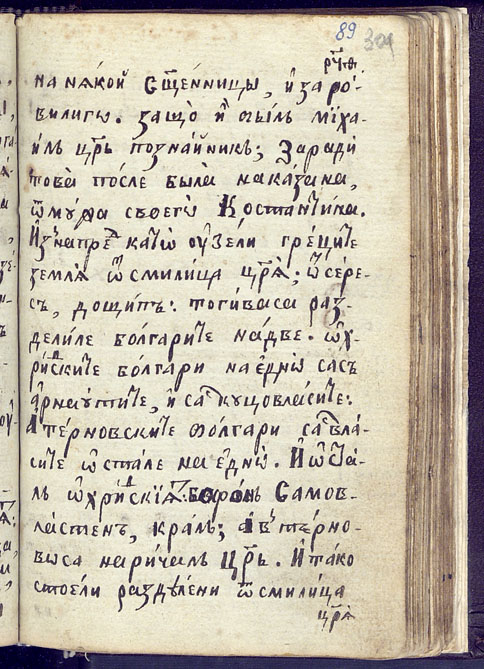 89 301
рч҃ѳ
на нѧкои Сщ҃е́нницы, и҆ заро́-
вилиго. защѡ̀ и҆ ѡ҆биль мїха-
и́ль цр҃ь познайникъ; Заради̂
това̀ после была̀ наказана,
ѿ мужа своегѡ̀ Костантина.
И҆ знапре́д като̀ ᲂу҆зели гре́ците
землѧ̀ ѿ смилица цр҃ѧ̀; ѿ сере-
съ, до щипъ: тогиваса раз-
делиле болгарите на две. ѡ҆х-
ри́дските болгари на е҆днѡ̀ сасъ
а҆рнаутите, и҆ са куцовласите:
А те́рновските болгари са вла-
сите ѡ҆стале на е҆днѡ̀. И҆ ѡ҆ста-
ль ѡ҆хри́дскїѧт: Самов-
ластенъ, краль; а҆ въ те́рно-
выса наричаль Цр҃ь. И҆ тако
стоели разде́лени ѿ смили́ца
цр҃ѧ̀